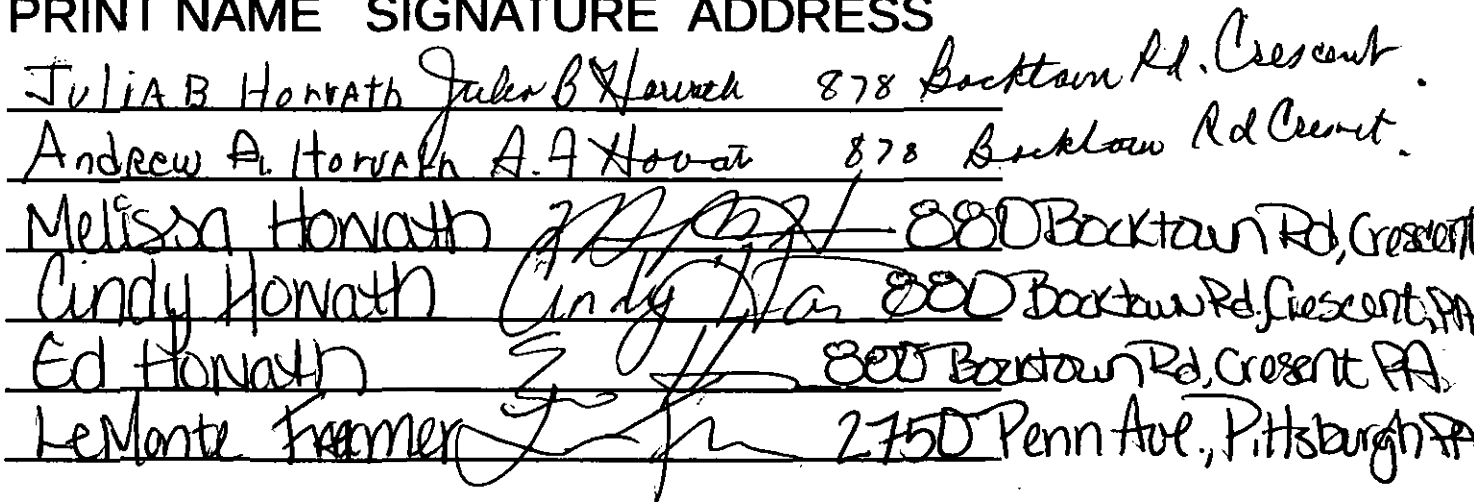 PRINT NAME SIGNATURE ADDRESS
JuliA B HorvAth Julia B Horvath 878 Bocktown Rd. Crescent.
AndRew A. HorvAth A. A Horvat 878 Bocktown Rd Cresnt.
Melissa Horvath 880 Bocktown Rd, Crescent
Cindy Horvath Cindy Hor 880 Bocktown Rd, Crescent, PA
Ed Horvath 880 Bocktown Rd, Cresent PA.
LeMonte 2750 Penn Ave., Pittsburgh PA